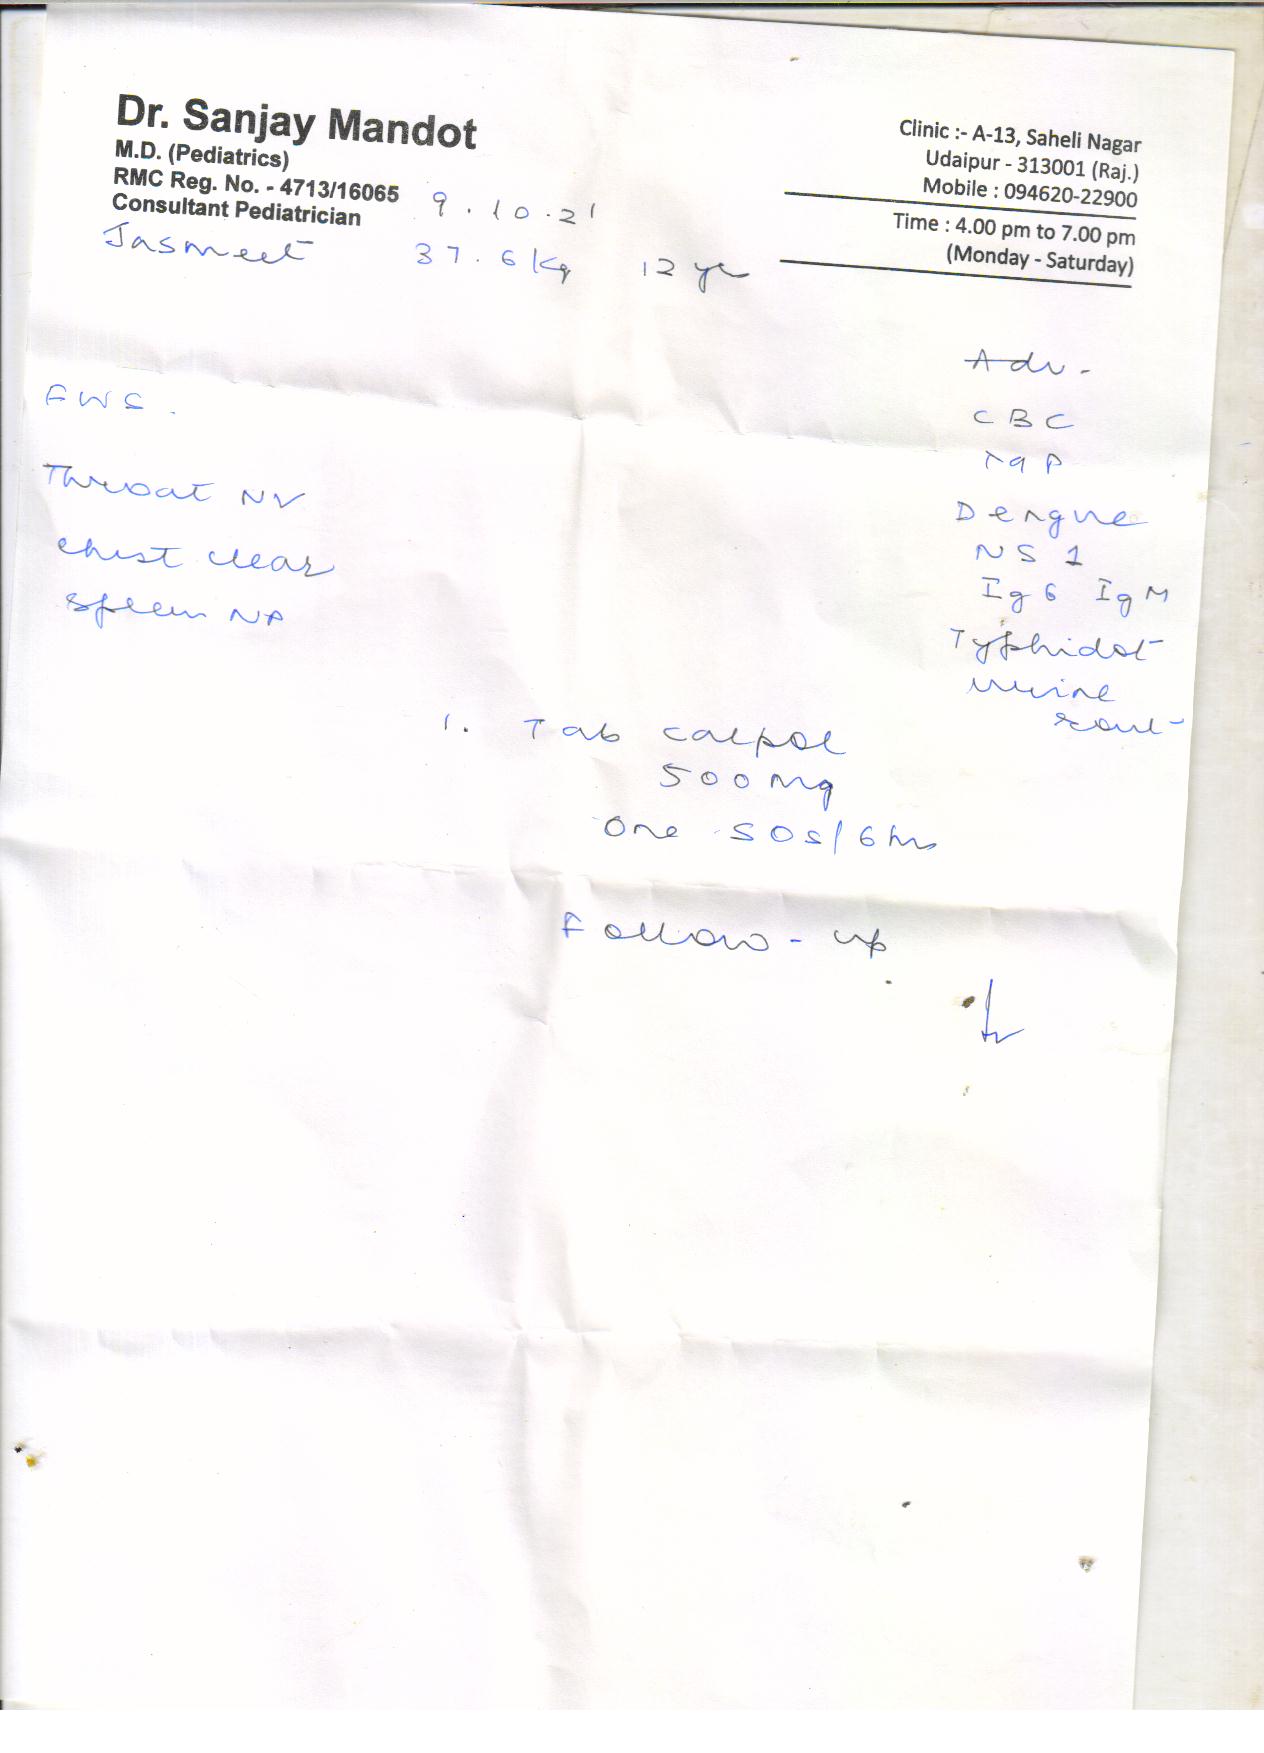 Dr. Sanjay Mandot
M.D. (Pediatrics)
RMC Reg. No. - 4713/16065
Consultant Pediatrician
Clinic :- A-13, Saheli Nagar
Udaipur - 313001 (Raj.)
Mobile : 094620-22900
Time : 4.00 pm to 7.00 pm
(Monday - Saturday)
9.10.21
Jasmeet 37.6 kg 12 yr
FWS.
Throat NV
Chest clear
Spleen NP
Adv-
CBC
Dengue
NS 1
IgG IgM
Typhidot
urine
1. Tab calpol
500 mg
One SOS/6 hr
Follow-up